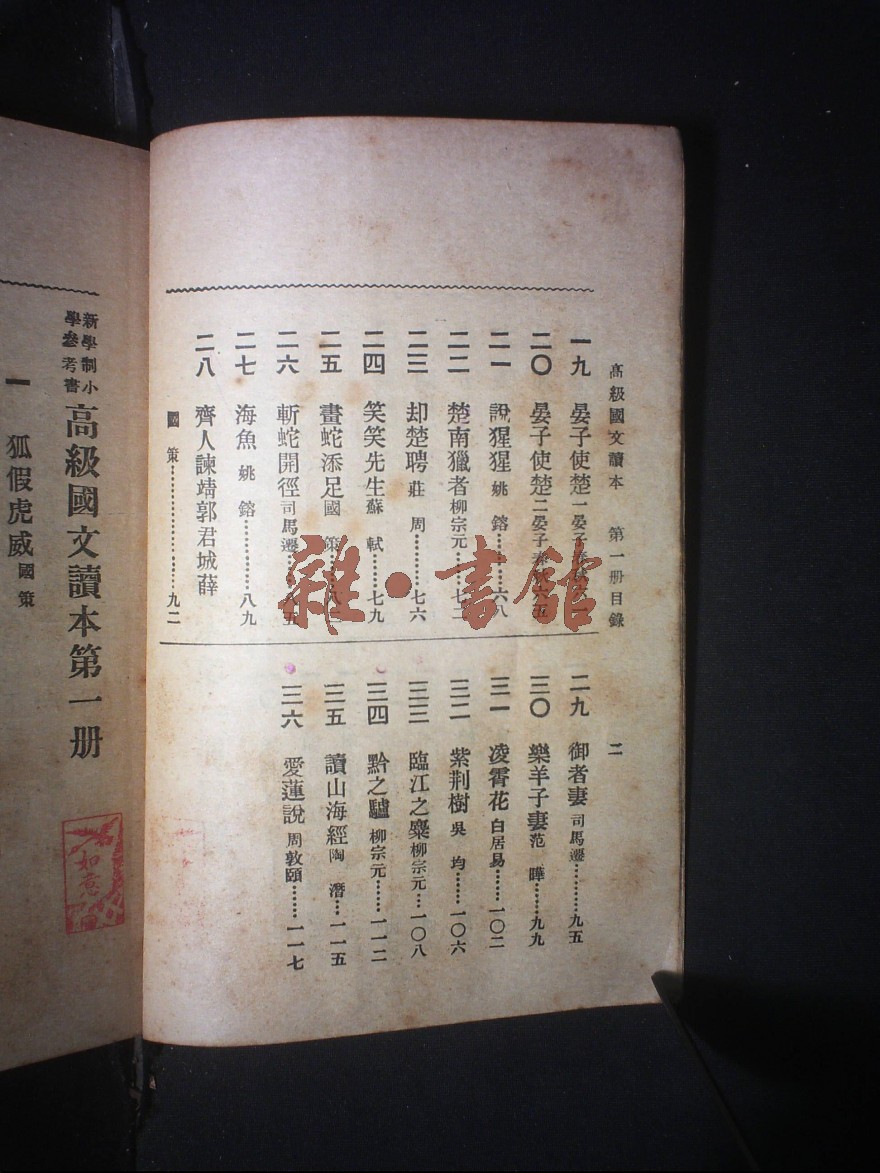 高級國文讀本　第一册目錄　二
一九　晏子使楚一晏子春秋六一
二〇　晏子使楚二晏子春秋六五
二一　說猩猩　姚　鎔……六八
二二　楚南獵者柳宗元…七二
二三　却楚聘　莊　周……七六
二四　笑笑先生蘇　軾……七九
二五　畫蛇添足國　策…八二
二六　斬蛇開徑司馬遷…八五
二七　海魚　姚　鎔………八九
二八　齊人諫靖郭君城薛
國　策………九二
二九　御者妻　司馬遷………九五
三〇　樂羊子妻范　曄……九九
三一　凌霄花　白居易……一〇二
三二　紫荆樹　吳　均……一〇六
三三　臨江之麋柳宗元…一〇八
三四　黔之驢　柳宗元……一一二
三五　讀山海經陶　潛…一一五
三六　愛蓮說　周敦頤……一一七
新學制小學參考書
高級國文讀本第一册
一　狐假虎威國　策
雜·書館
如意